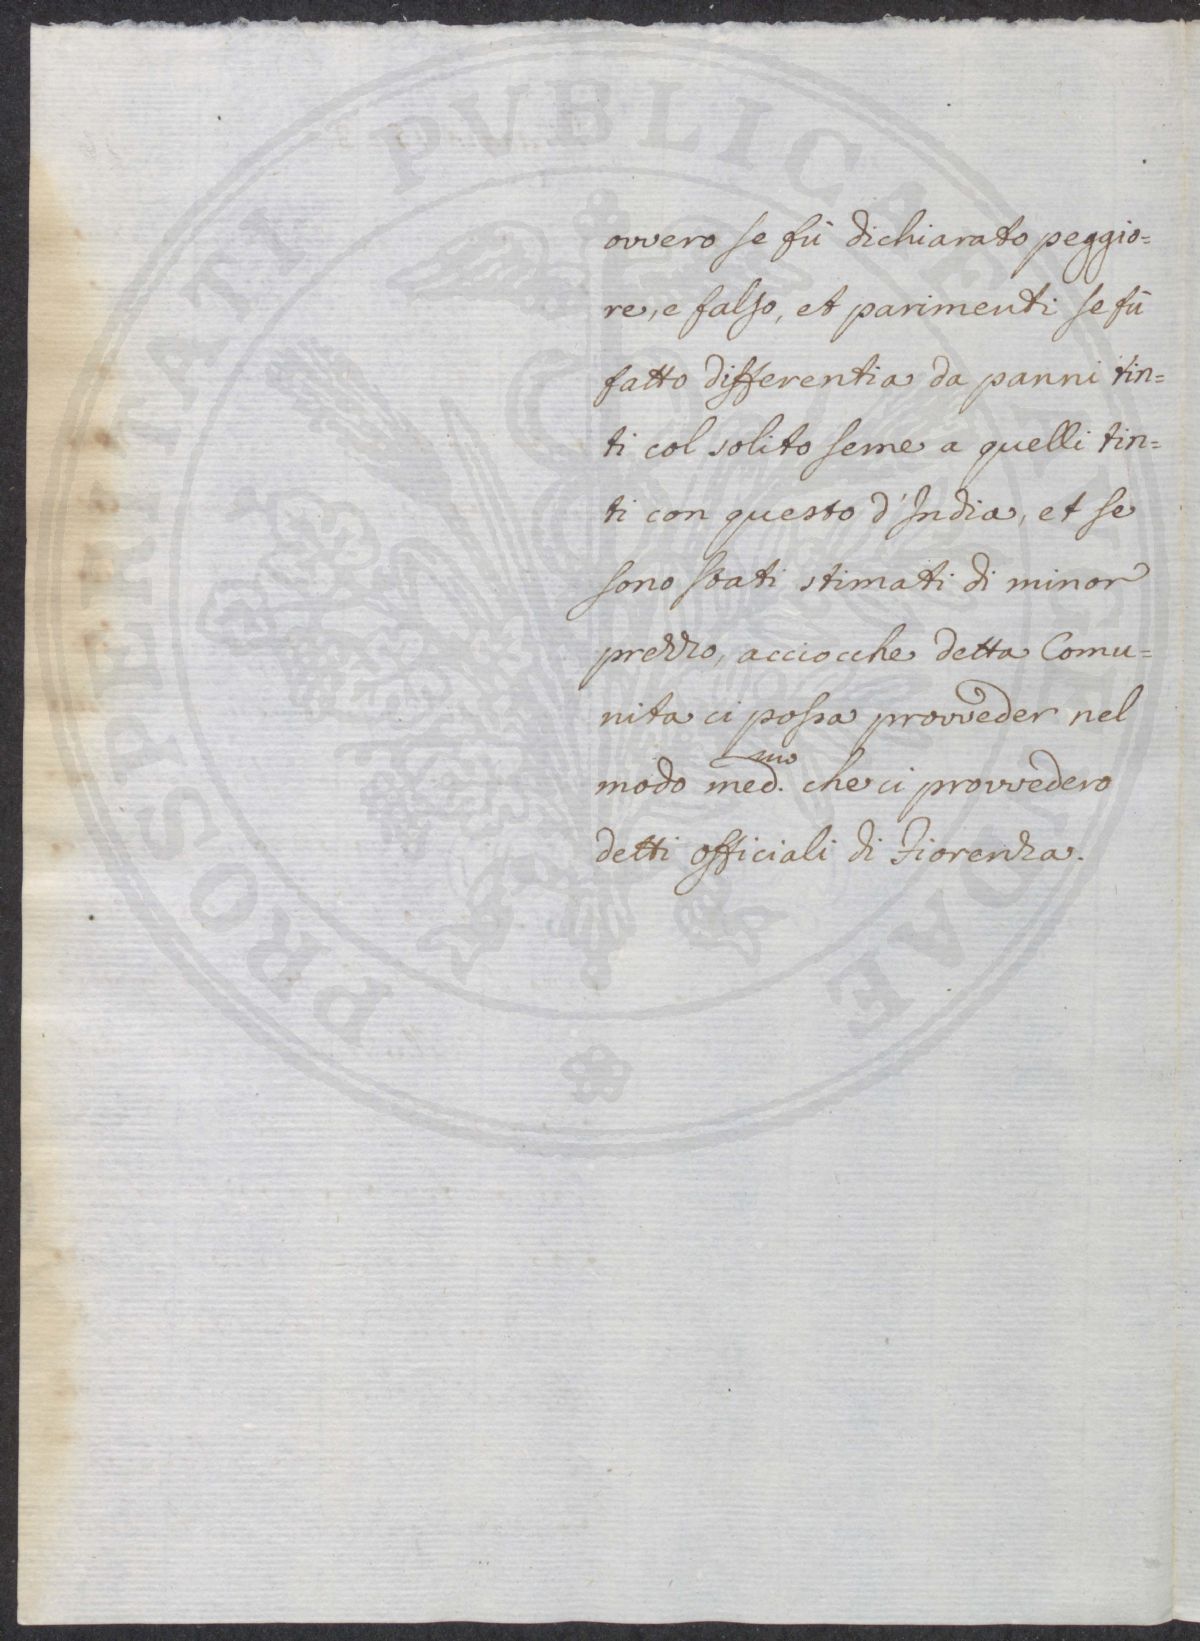 ovvero se fù dichiarato peggio=
re, e falso, et parimenti se fù
fatto differentia da panni tin=
ti col solito seme a quelli tin=
ti con questo d'India, et se
sono stati stimati di minor
prezzo, acciocche detta Comu=
nita ci possa provveder nel
modo med.mo che ci provvedero
detti officiali di Fiorenza.
PROSPERITATI PUBLICAE AUGENDAE